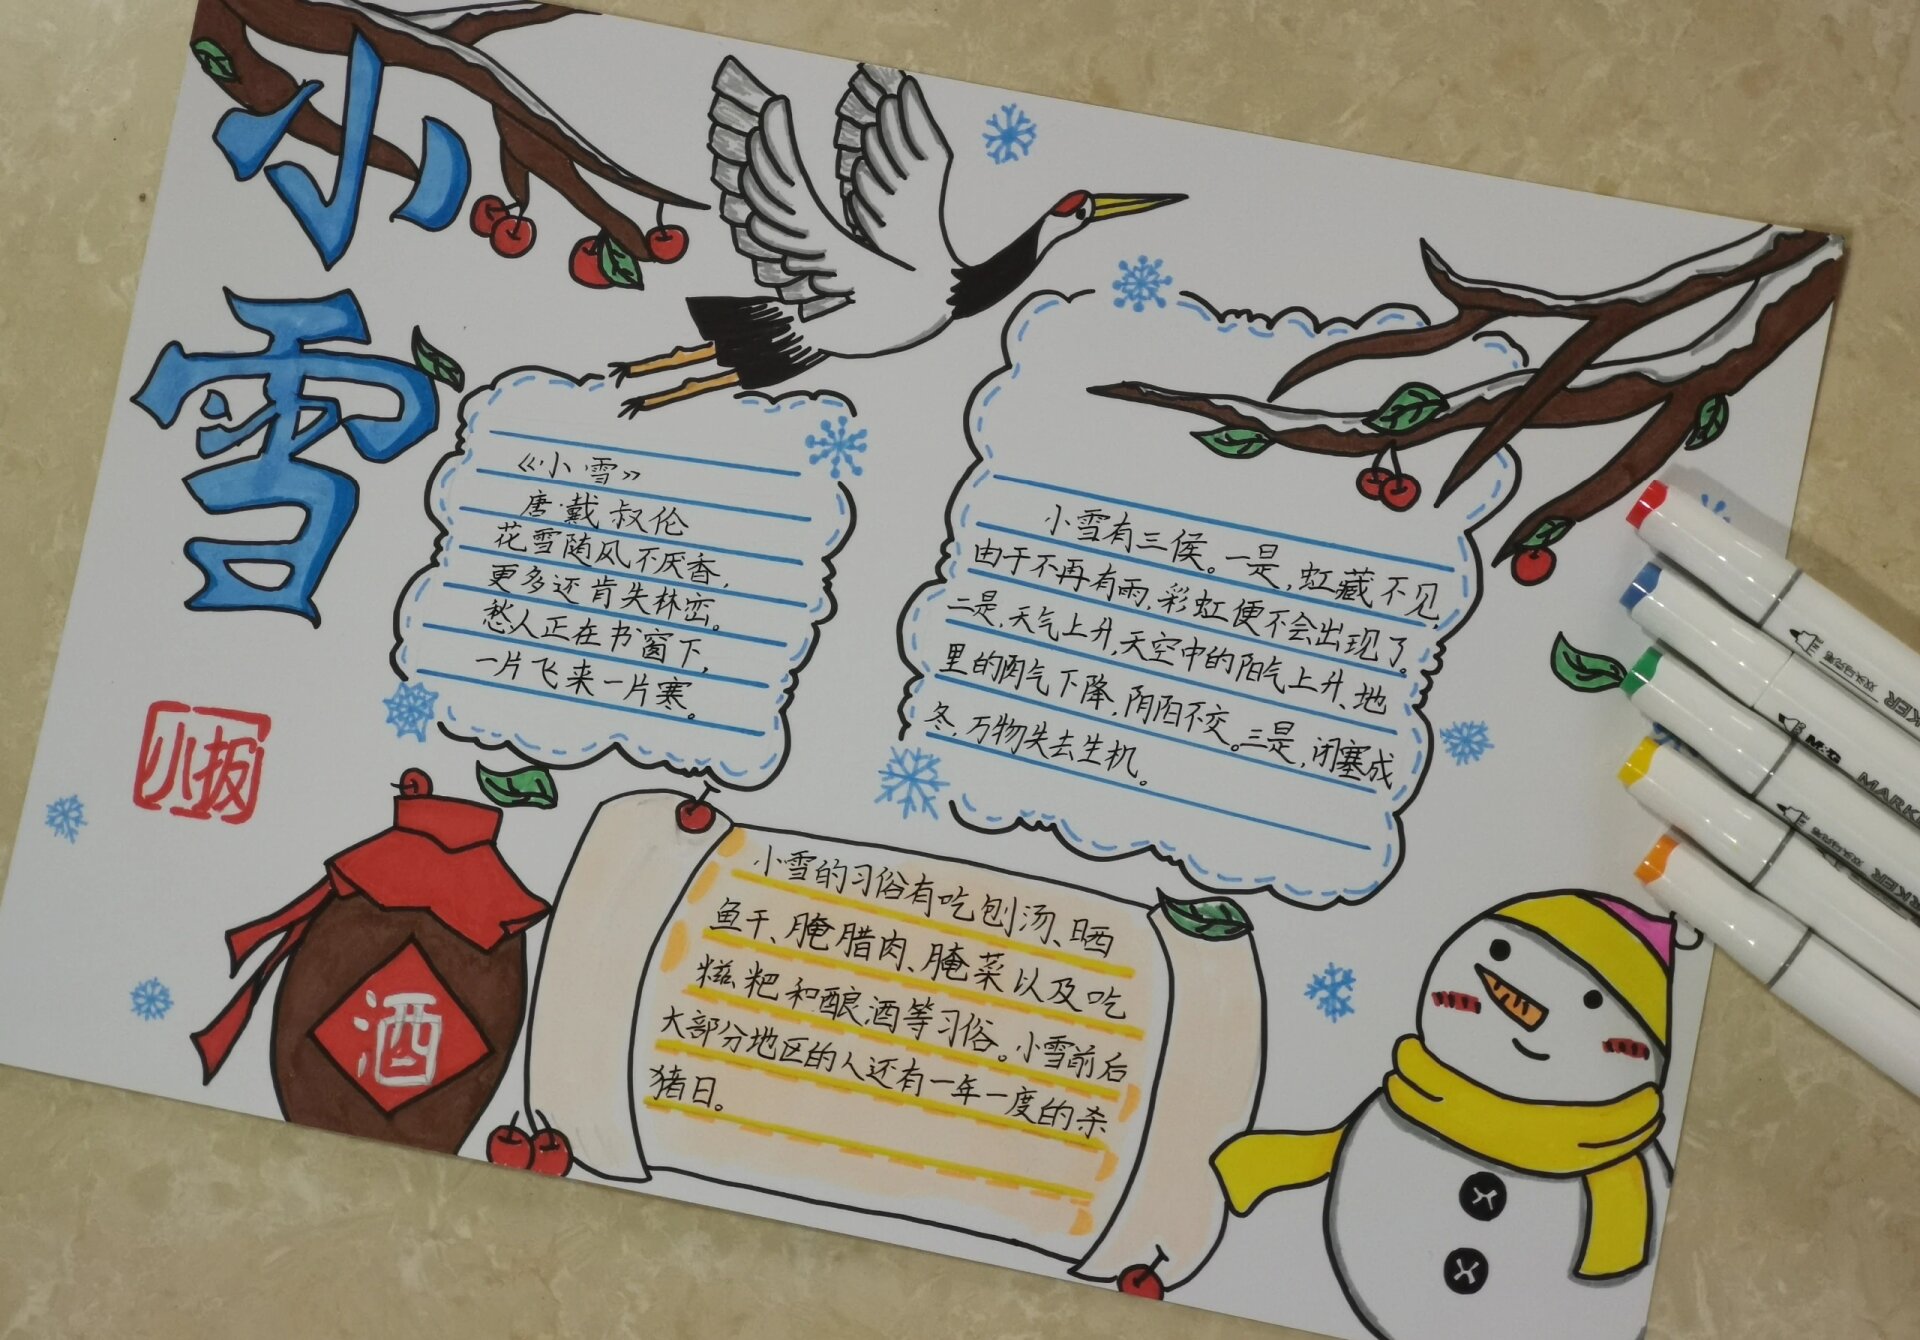 小雪
《小雪》
唐·戴叔伦
花雪随风不厌香，
更多还肯失林峦。
愁人正在书窗下，
一片飞来一片寒。
小雪有三候。一是，虹藏不见，
由于不再有雨，彩虹便不会出现了。
二是，天气上升，天空中的阳气上升、地
里的阴气下降，阴阳不交。三是，闭塞成
冬，万物失去生机。
小雪的习俗有吃刨汤、晒
鱼干、腌腊肉、腌菜以及吃
糍粑和酿酒等习俗。小雪前后
大部分地区的人还有一年一度的杀
猪日。
酒
M&G
MARKER